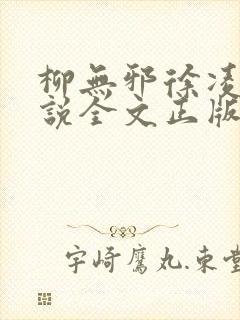 柳無邪徐凌
説全文正版
宇崎鷹丸.東堂